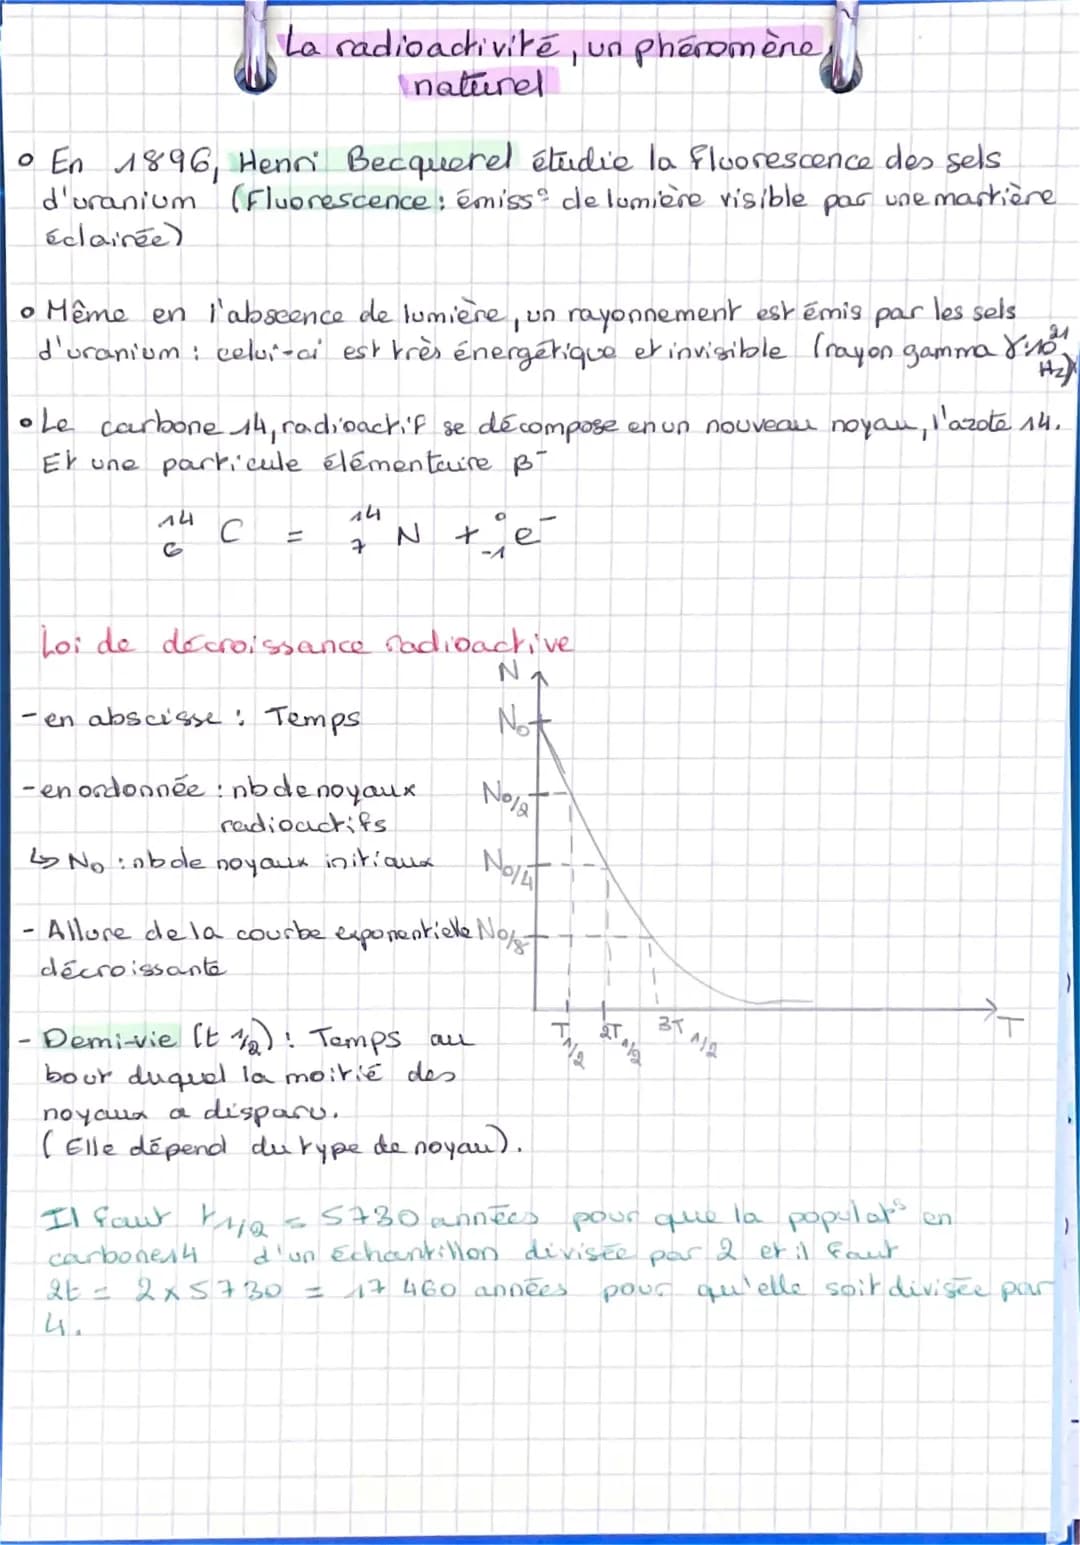 La radioactivité, un phénomène
naturel
• En 1896, Henri Becquerel étudie la fluorescence des sels
d'uranium (Fluorescence : émiss° de lumière visible par une martière
éclairée)
• Même en l'abscence de lumière, un rayonnement est émis par les sels
d'uranium : celui-ci est très énergétique et invisible (rayon gamma γ:10²¹
Hz)
• Le carbone 14, radioactif se décompose en un nouveau noyau, l'azote 14.
Et une particule élémentaire β⁻
¹⁴₆C = ¹⁴₇N + ⁰₋₁e⁻
Loi de décroissance radioactive
- en abscisse : Temps
- en ordonnée : nb de noyaux
radioactifs
↳ N₀ : nb de noyaux initiaux
- Allure de la courbe exponentielle
décroissante
- Demi-vie (t 1/2) : Temps au
bout duquel la moitié des
noyaux a disparu.
(Elle dépend du type de noyau).
N
N₀
N₀/2
N₀/4
N₀/8
T1/2 2T1/2 3T1/2 T
Il faut t1/2 = 5730 années pour que la populat° en
carbone14 d'un échantillon divisée par 2 et il faut
2t = 2 x 5730 = 17 460 années pour qu'elle soit divisée par
4.